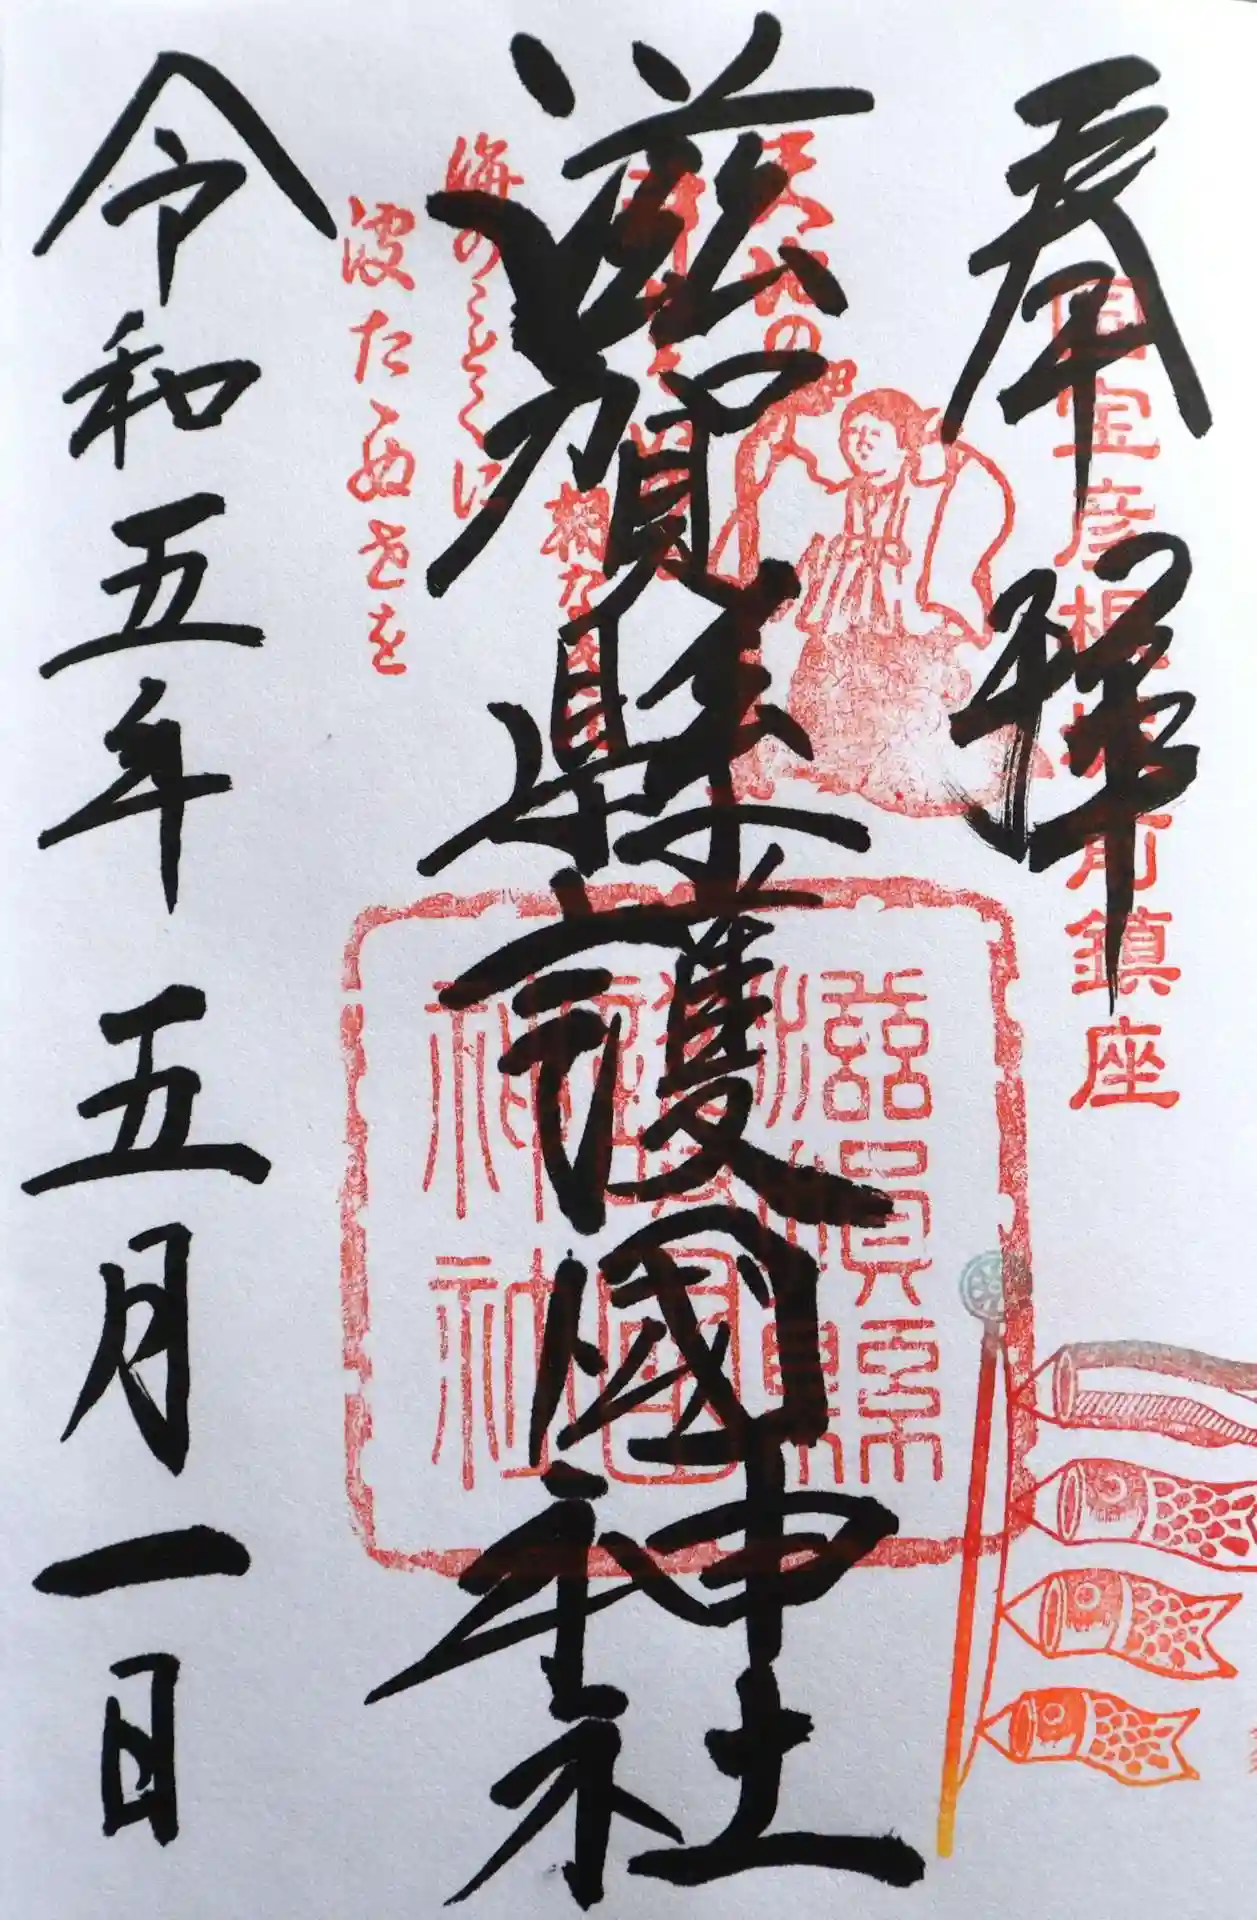 奉拝
国宝彦根城前鎮座
滋賀縣護國神社
天地の
朝なきの
海のことくに
波たゝぬ世を
滋賀縣
護國
神社
令和五年五月一日